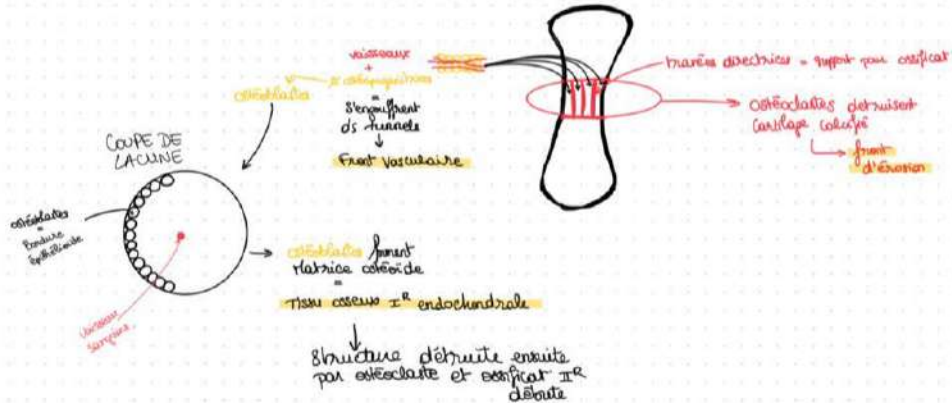 vaisseaux
+
ostéoblastes
% ostéoprogénitrices
=
s'engouffrent
ds tunnels
Front vasculaire
travées directrices = support pour ossificat
ostéoclastes détruisent
cartilage calcifié
front
d'érosion
COUPE DE
LACUNE
ostéoblastes
=
Bordure
épithélioïde
vaisseau
sanguin
ostéoblastes forment
Matrice ostéoïde
=
Tissu osseux I^R endochondrale
Structure détruite ensuite
par ostéoclaste et ossificat II^R
débute